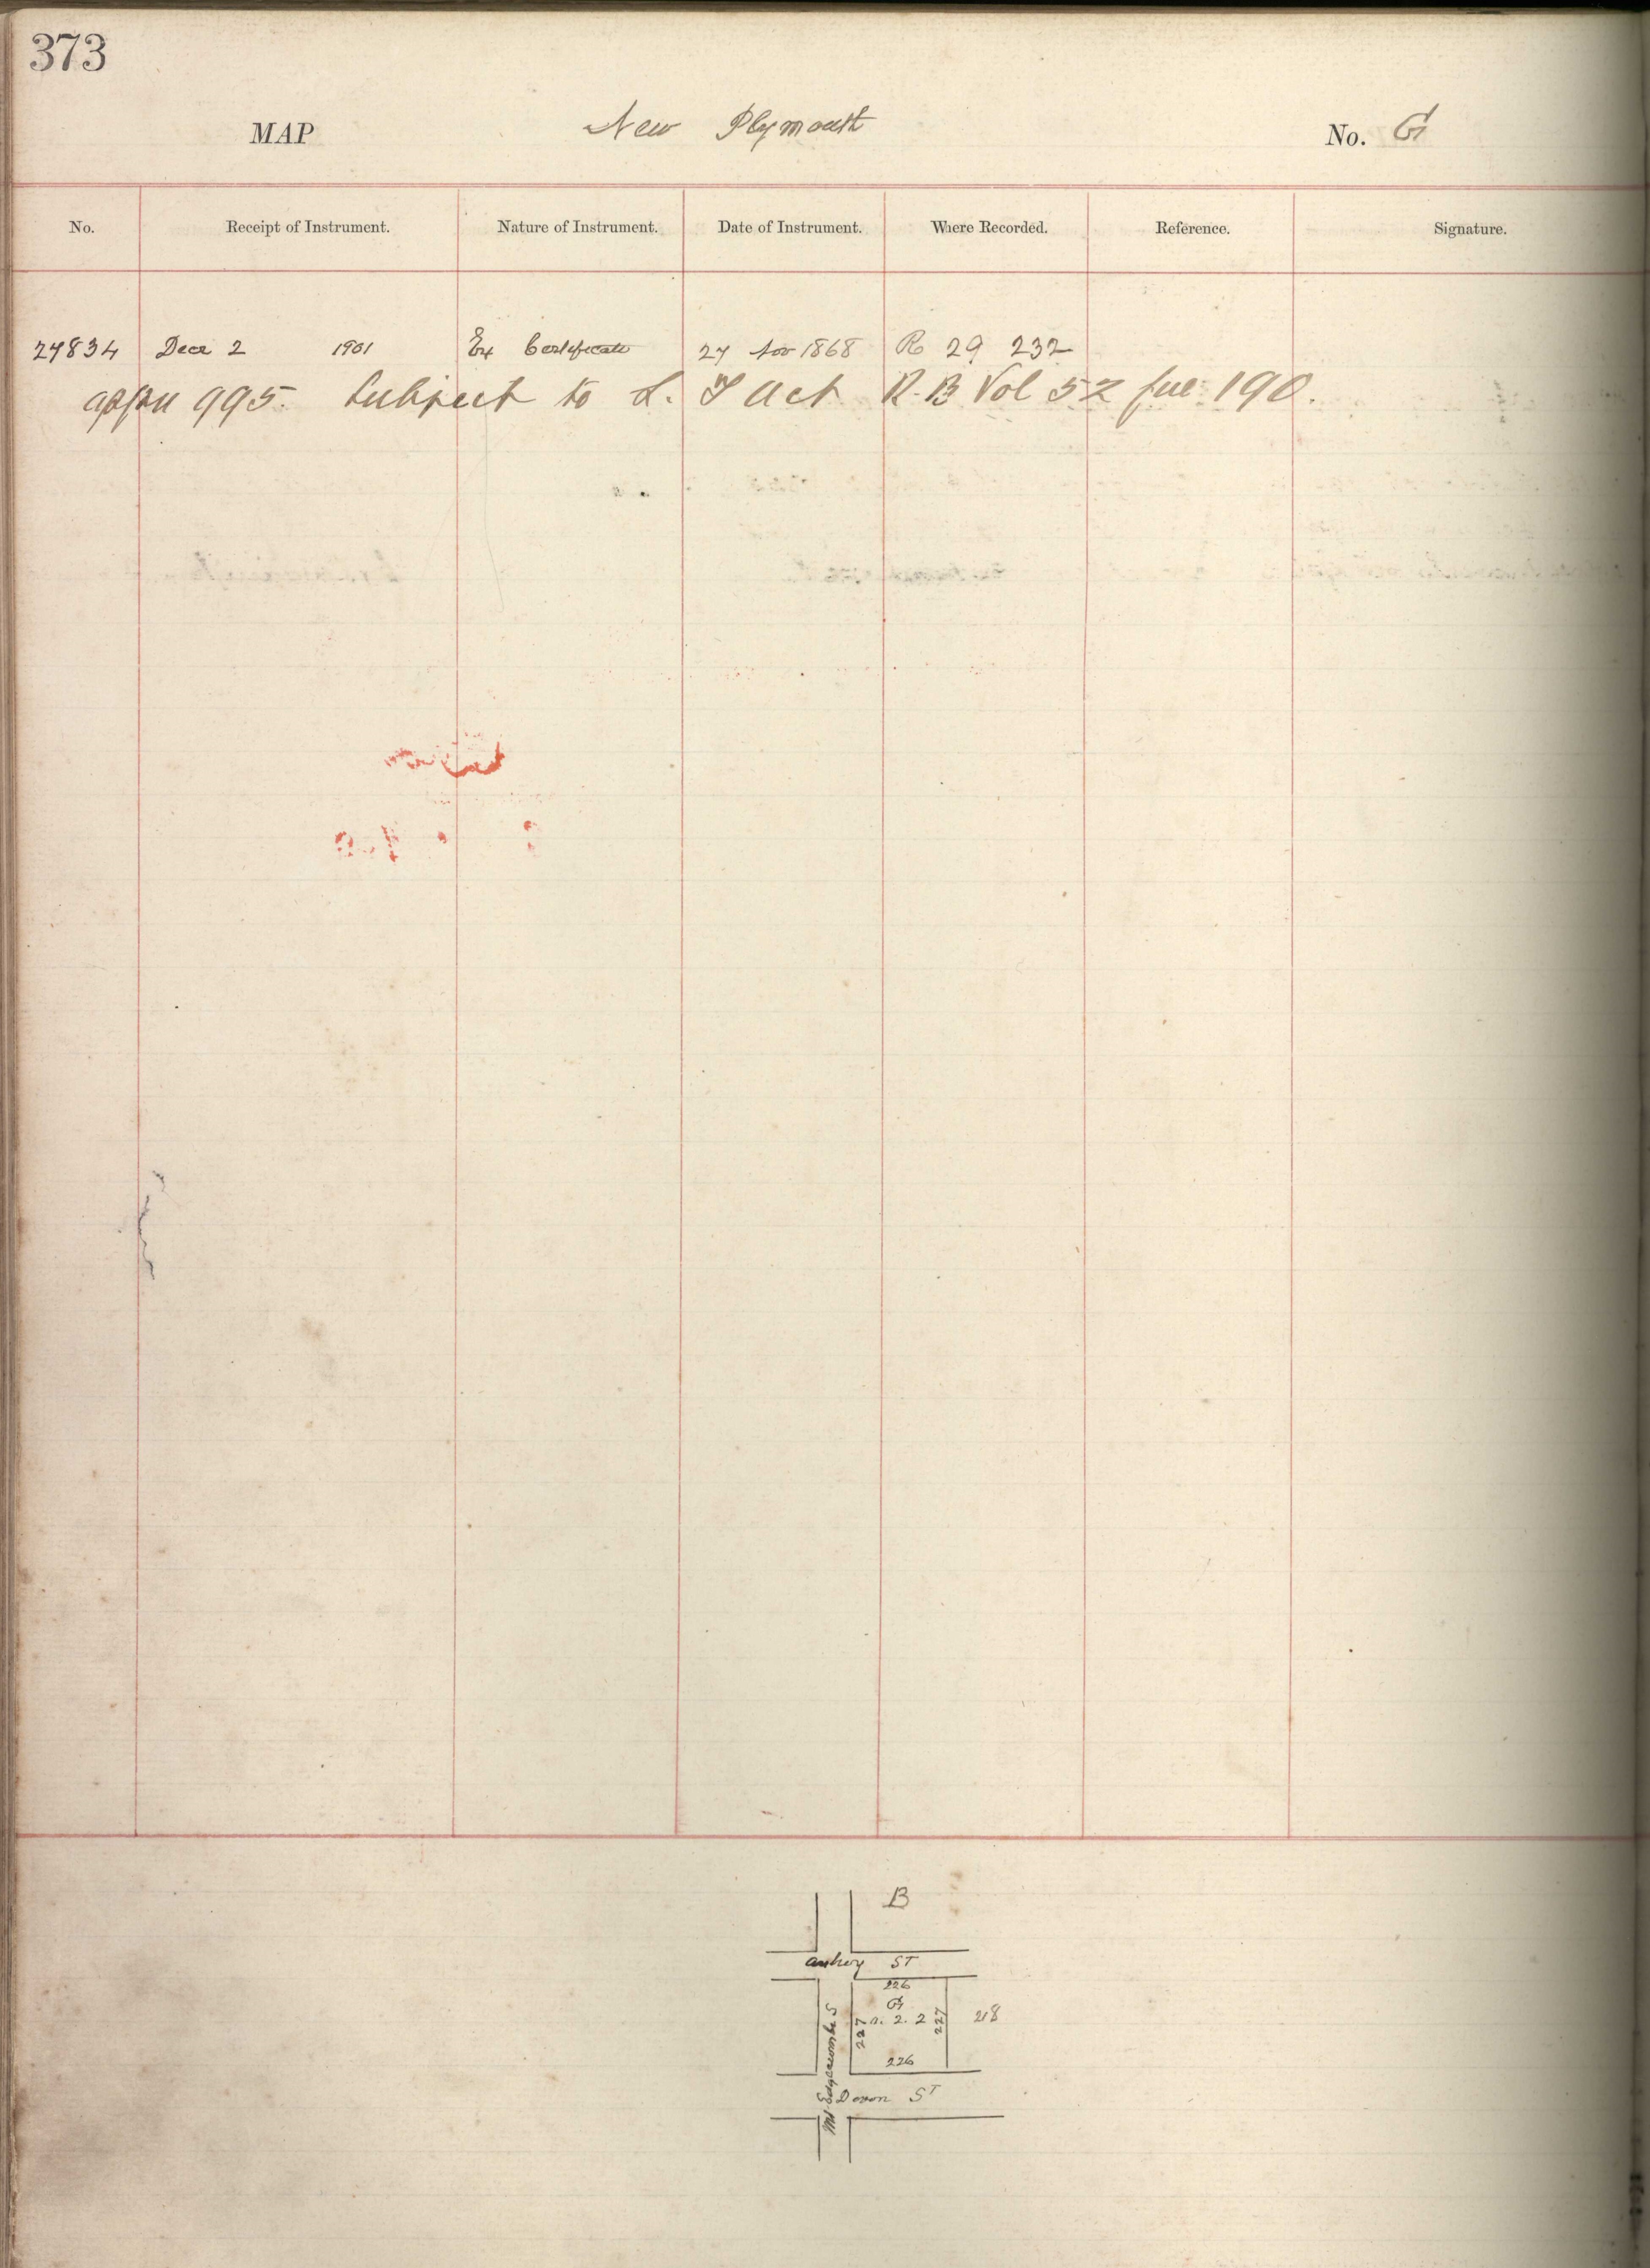 373
MAP New Plymouth No. G
No. Receipt of Instrument. Nature of Instrument. Date of Instrument. Where Recorded. Reference. Signature.
24834 Decr 2 1901 Ex Certificate 24 Nov 1868 R 29 232
appn 995. Subject to L. T Act R.B Vol 52 fue 190.
B
St
226
G
2. 2
227
227
218
226
Mt Edgecombe S
Devon ST